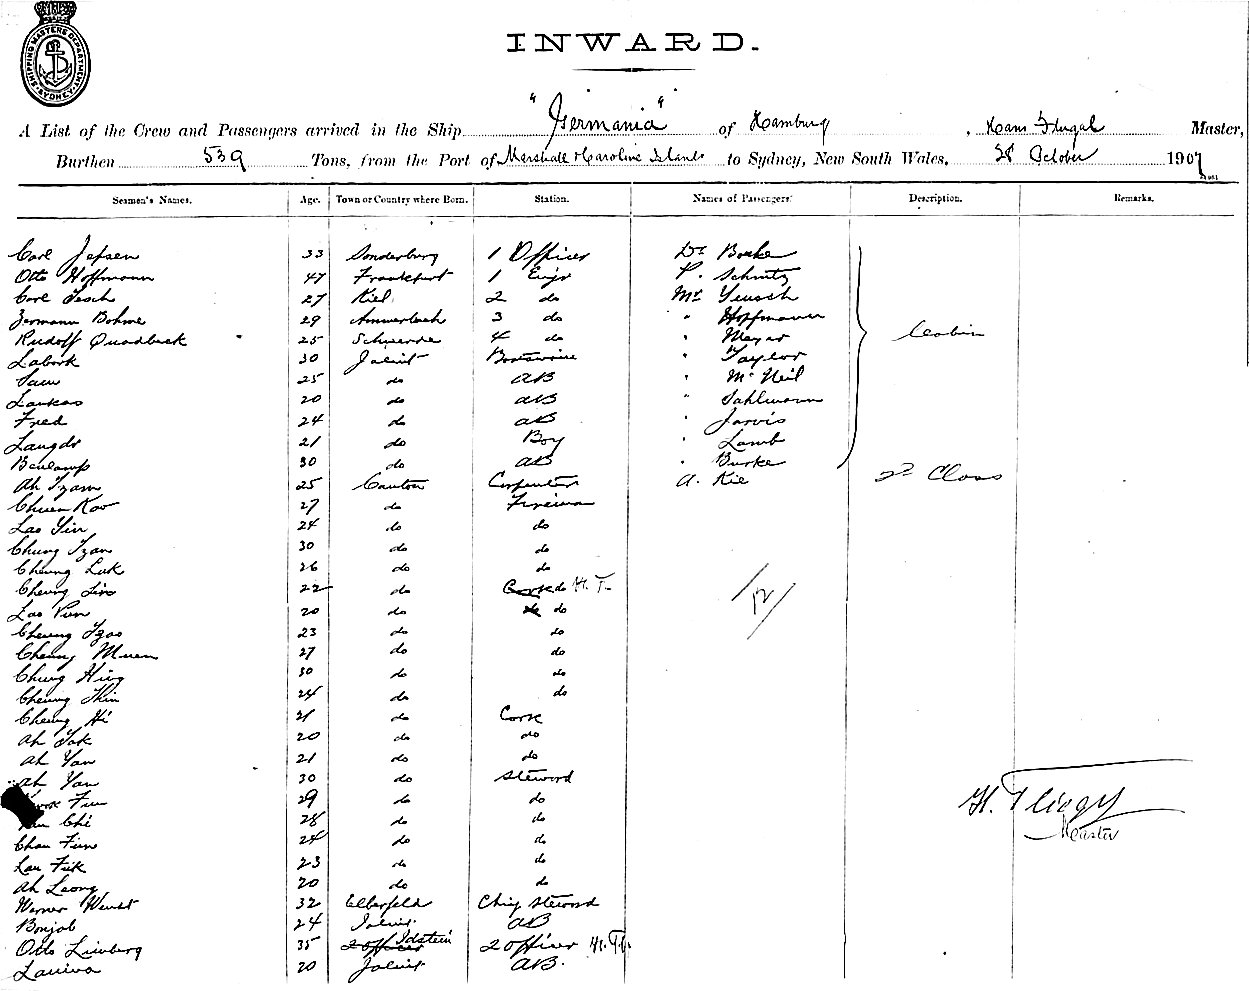 SHIPPING MASTERS DEPARTMENT
SYDNEY
INWARD.
A List of the Crew and Passengers arrived in the Ship "Germania" of Hamburg, Hans Master,
Burthen 539 Tons, from the Port of Marshall & Caroline Islands to Sydney, New South Wales, 28 October 1907
Seamen's Names. Age. Town or Country where Born. Station. Names of Passengers. Description. Remarks.
Carl Jepsen 33 Sonderburg 1 Officer Dr
Otto Hoffmann 47 Frankfurt 1 Engr P. Schmitz
Carl Tesch 27 Kiel 2 do Mr
Hermann Bohme 29 3 do " Hoffmann
Rudolf Quadbeck 25 Schwerde 4 do " Meyer Cabin
Labork 30 Jaluit Boatswain " Taylor
25 do AB " McNeil
Laukas 20 do AB " Sahlmann
Fred 24 do AB " Jarvis
Langdr 21 do Boy " Lamb
30 do AB " Burke
Ah Tzam 25 Canton Carpenter A. Kie 2d Class
Chuen Kao 27 do Fireman
Lao Yin 24 do do
Chung Tzan 30 do do
Cheung Luk 26 do do
Cheung 22 do Cook do H. F.
Lao 20 do do do 12
Cheung Tzao 23 do do
Cheung Muen 27 do do
Chung Hing 30 do do
Cheung Shin 24 do do
Cheung Hi 21 do Cook
Ah Tak 20 do do
Ah Yan 21 do do
Ah Yan 30 do Steward
Fun 29 do do H. Fliegg
Chi 28 do do Master
Chau Fun 24 do do
Lau Fuk 23 do do
Ah Leong 20 do do
Werner Wendt 32 Elberfeld Chief Steward
Bonjob 24 Jaluit AB
Otto Limberg 35 2 Officer Idstein 2 Officer H. Fl.
Lauiva 20 Jaluit AB.